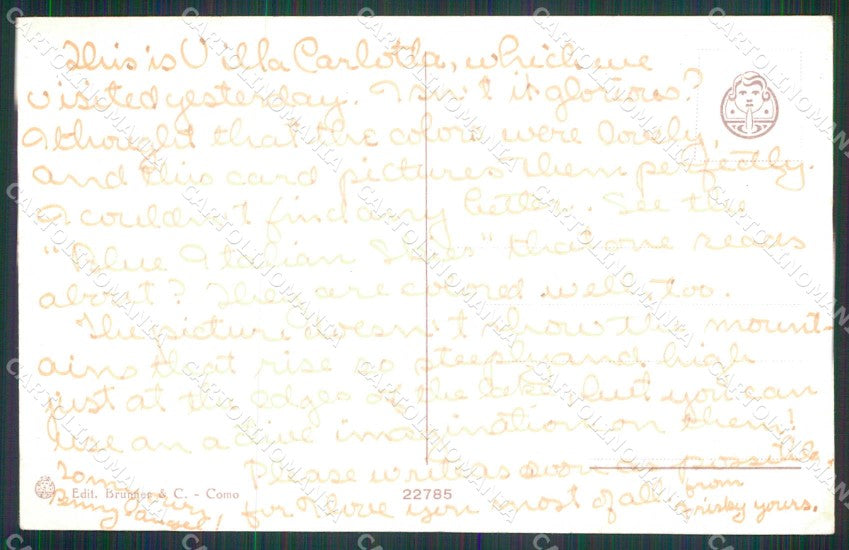 This is Villa Carlotta, which we
visited yesterday. Isn't it glorious?
I thought that the colors were lovely,
and this card pictures them perfectly.
I couldn't find any better. See the
"Blue Italian Skies" that one reads
about? They are colored well, too.
The picture doesn't show the mount-
ains that rise so steeply and high
just at the edges of the lake but you can
use an active imagination on them!
Please write as soon as possible
for I love you most of all. from
yours.
Edit. Brunner & C. - Como
22785
CARTOLINOMANIA